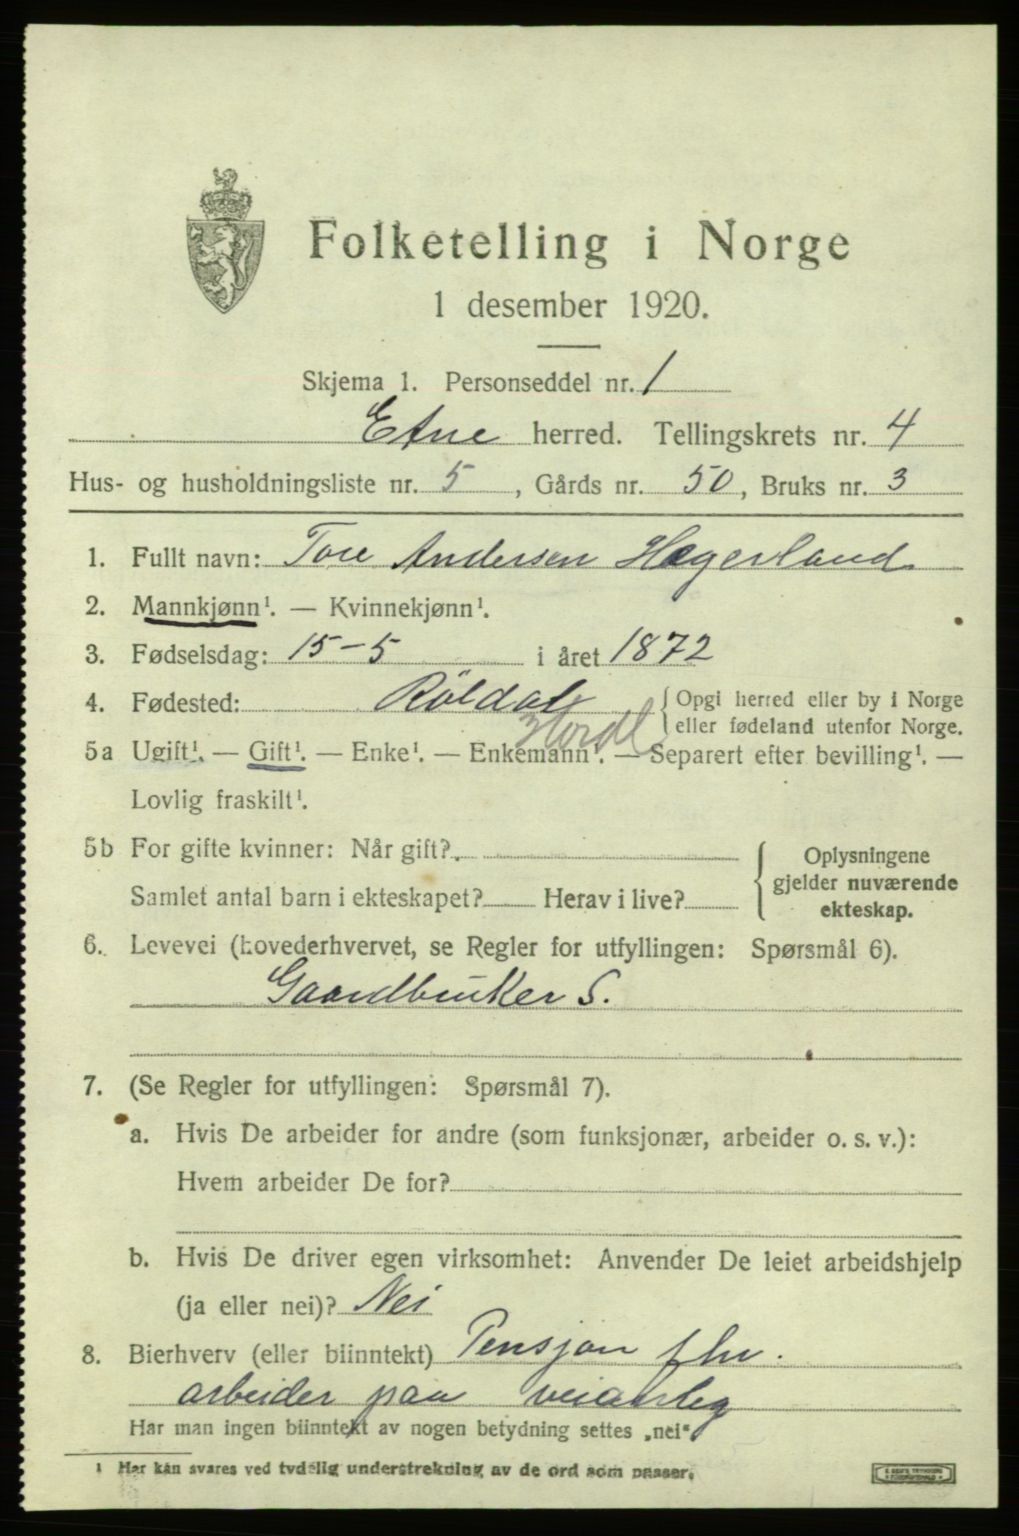 Folketelling i Norge
1 desember 1920.
Skjema 1. Personseddel nr. 1
Etne herred. Tellingskrets nr. 4
Hus- og husholdningsliste nr. 5, Gårds nr. 50, Bruks nr. 3
1. Fullt navn: Tore Andersen Hægerland
2. Mannkjønn¹. — Kvinnekjønn¹.
3. Fødselsdag: 15-5 i året 1872
4. Fødested: Røldal { Opgi herred eller by i Norge
eller fødeland utenfor Norge.
Hordl
5a Ugift¹. — Gift¹. — Enke¹. — Enkemann¹. — Separert efter bevilling¹. —
Lovlig fraskilt¹.
5b For gifte kvinner: Når gift?
Samlet antal barn i ekteskapet? Herav i live?
Oplysningene
gjelder nuværende
ekteskap.
6. Levevei (hovederhvervet, se Regler for utfyllingen: Spørsmål 6).
Gaardbruker S.
7. (Se Regler for utfyllingen: Spørsmål 7).
a. Hvis De arbeider for andre (som funksjonær, arbeider o. s. v.):
Hvem arbeider De for?
b. Hvis De driver egen virksomhet: Anvender De leiet arbeidshjelp
(ja eller nei)? Nei
8. Bierhverv (eller biinntekt) Pensjon fhv.
arbeider paa veianleg
Har man ingen biinntekt av nogen betydning settes „nei"
¹ Her kan svares ved tydelig understrekning av de ord som passer.